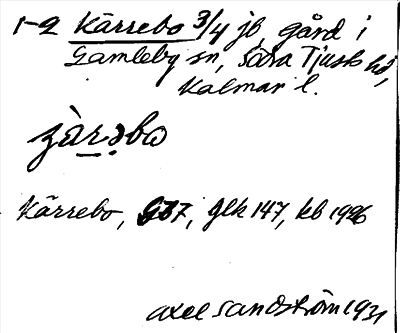 1-2 Kärrebo 3/4 jb, gård i
Gamleby sn, Södra Tjusts hd,
Kalmar l.
Kärrebo, jlk 147, kb 1926
Axel Sandström 1931